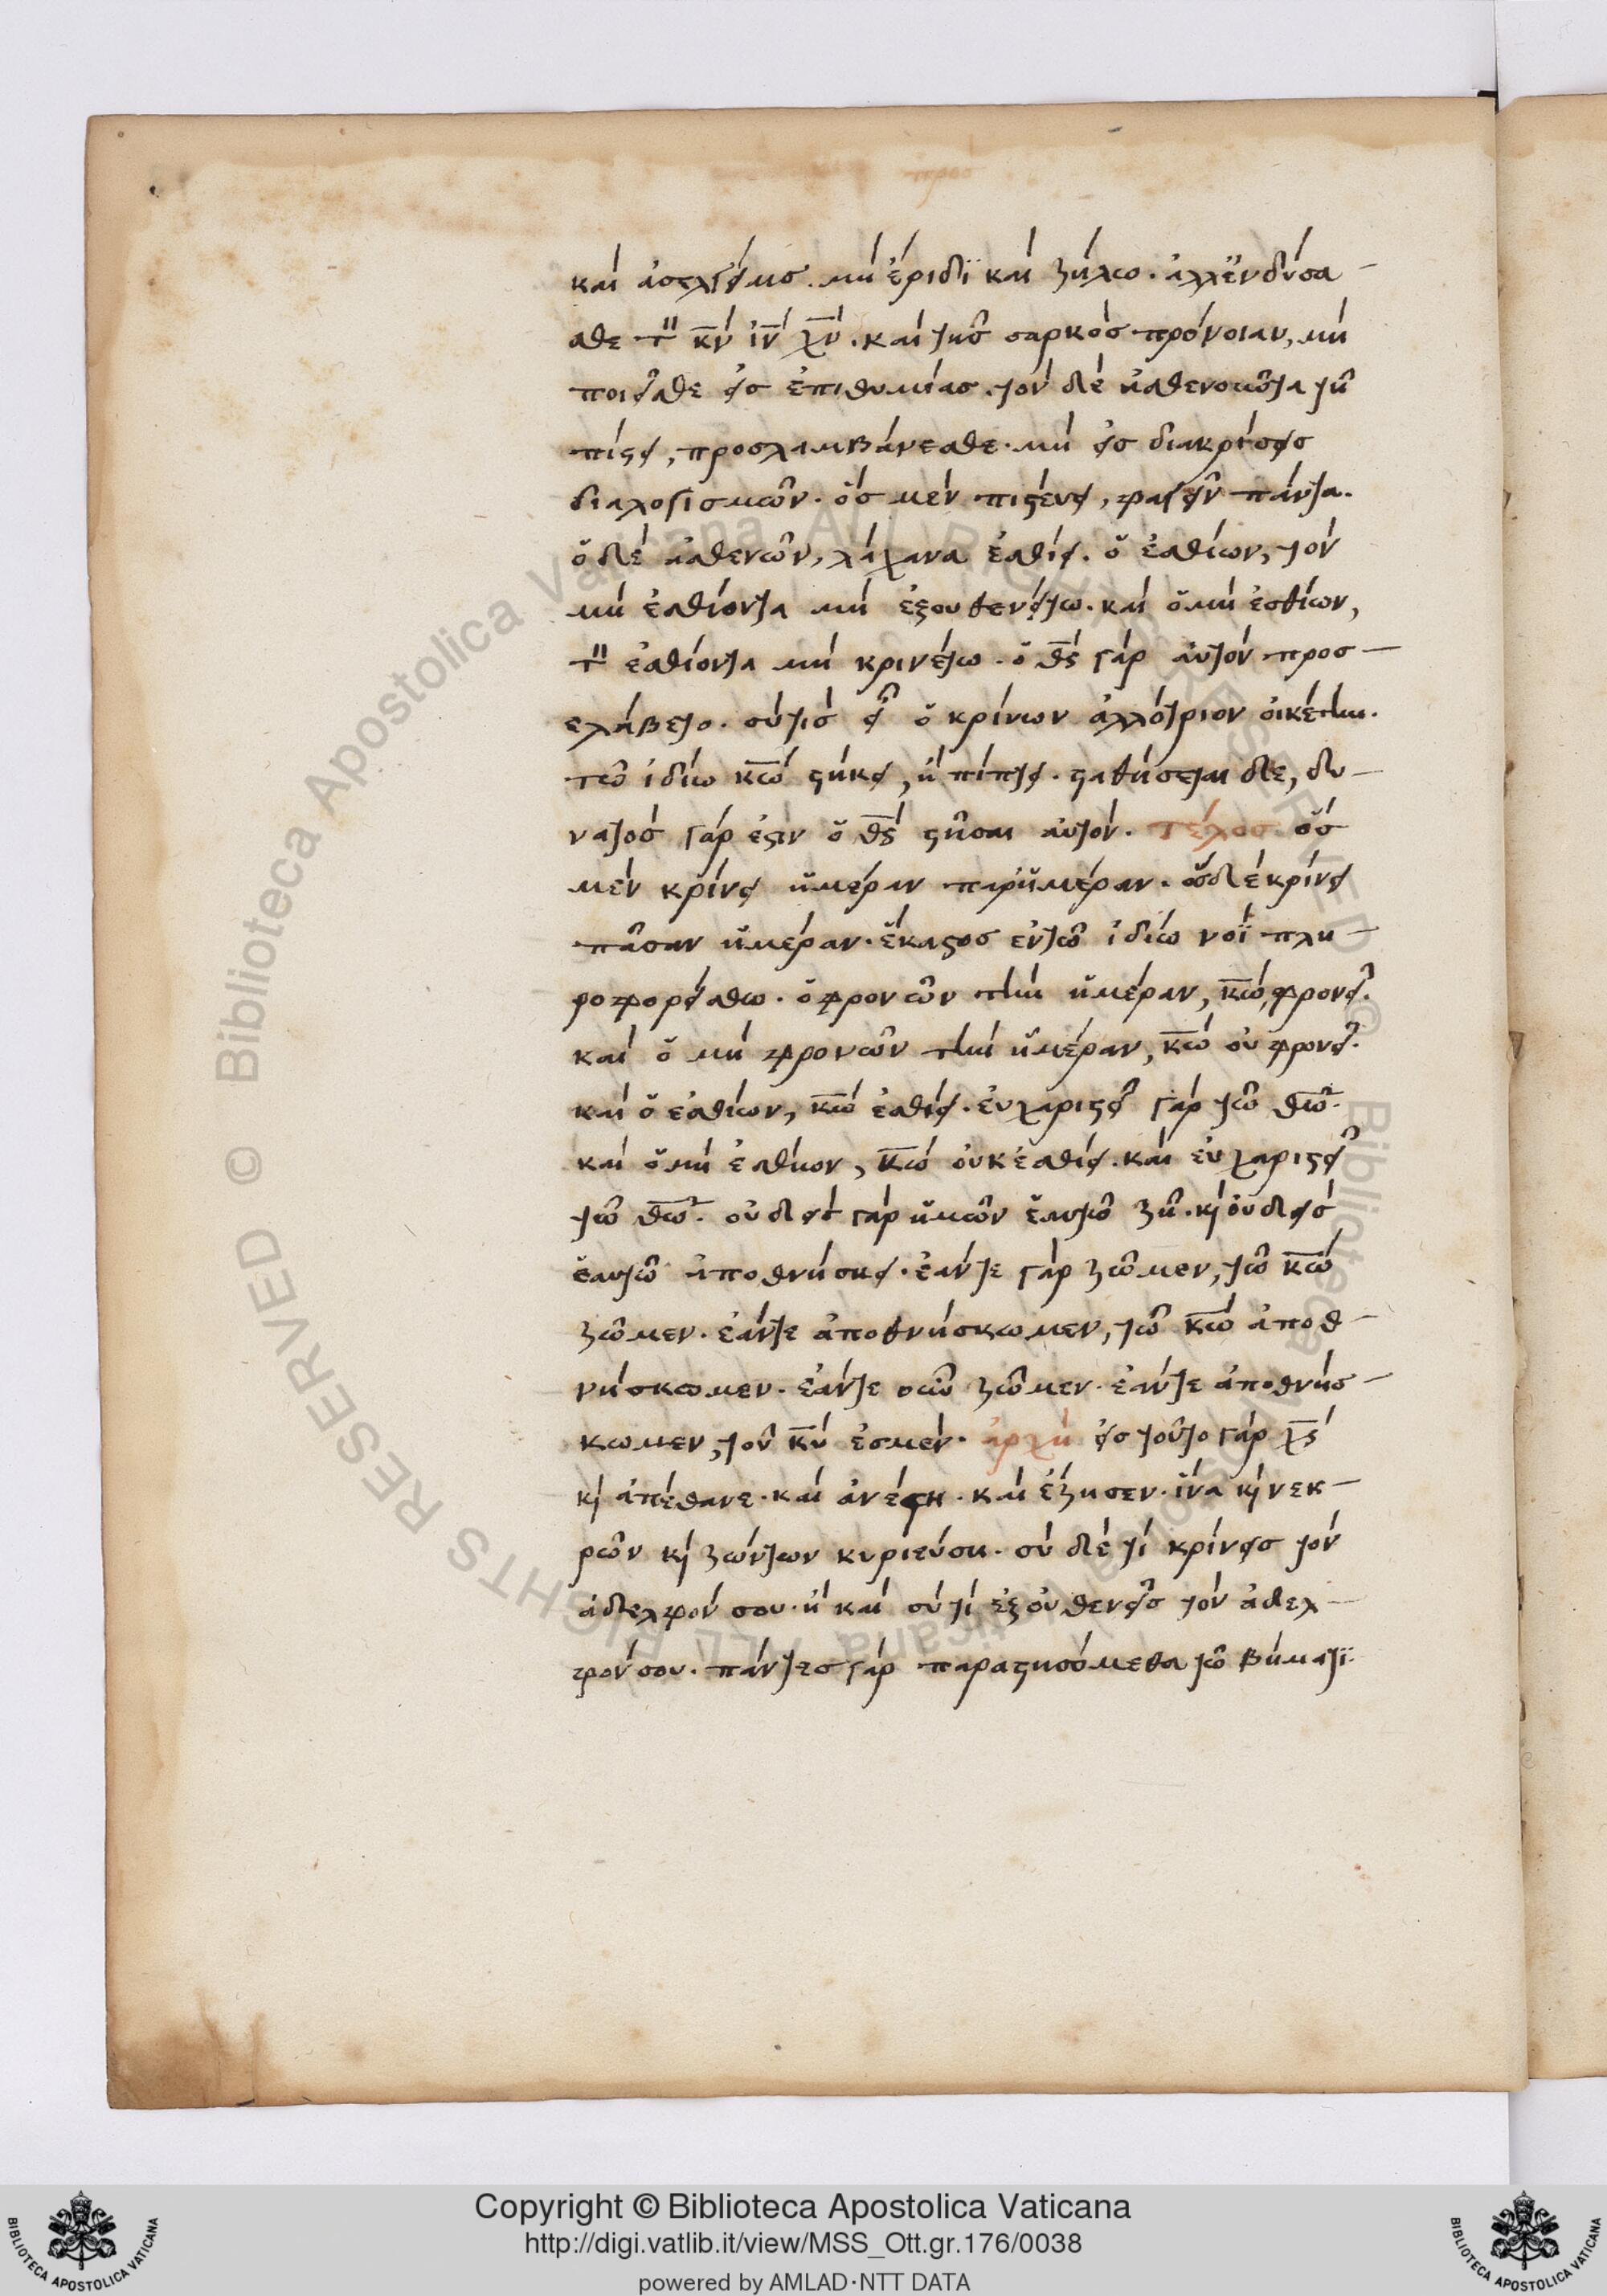 προσ
και ἀσελγείαις. μὴ ἔριδϊ και ζήλω. ἀλλἐνδύσα
σθε τὸν κ̅ν̅ ι̅ν̅ χ̅ν̅. και τῆς σαρκὸς πρόνοιαν, μὴ
ποιεῖσθε εἰς ἐπιθυμίας. τὸν δὲ ἀσθενοῦντα τῆ
πίστει, προσλαμβάνεσθε. μὴ εἰς διακρίσεις
διαλογισμῶν. ὃς μὲν πιστεύει, φαγεῖν πάντα.
ὁ δὲ ἀσθενῶν, λάχανα ἐσθίει. ὁ ἐσθίων, τὸν
μὴ ἐσθίοντα μὴ ἐξουθενείτω. και ὁ μὴ ἐσθίων,
τὸν ἐσθίοντα μὴ κρινέτω. ὁ θ̅ς̅ γὰρ αὐτὸν προσ
ελάβετο. σὺ τίς εἶ ὁ κρίνων ἀλλότριον οἰκέτην.
τῶ ἰδίω κ̅ω̅ στήκει, ἢ πίπτει. σταθήσεται δε, δυ
νατὸς γάρ ἐστιν ὁ θ̅ς̅ στῆσαι αὐτόν. τέλος ὃς
μὲν κρίνει ἡμέραν παρἡμέραν. ὃς δὲ κρίνει
πᾶσαν ἡμέραν. ἕκαστος ἐν τῶ ἰδίω νοῒ πλη
ροφορείσθω. ὁ φρονῶν τὴν ἡμέραν, κ̅ω̅ φρονεῖ.
και ὁ μὴ φρονῶν τὴν ἡμέραν, κ̅ω̅ οὐ φρονεῖ.
και ὁ ἐσθίων, κ̅ω̅ ἐσθίει. εὐχαριστεῖ γὰρ τῶ θ̅ω̅.
και ὁ μὴ ἐσθίων, κ̅ω̅ οὐκ ἐσθίει. και εὐχαριστεῖ
τῶ θ̅ω̅. οὐδεὶς γὰρ ἡμῶν ἑαυτῶ ζῆ. κὶ οὐδεὶς
ἑαυτῶ ἀποθνήσκει. ἐάν τε γὰρ ζῶμεν, τῶ κ̅ω̅
ζῶμεν. ἐάν τε ἀποθνήσκωμεν, τῶ κ̅ω̅ ἀποθ
νήσκωμεν. ἐάν τε οὖν ζῶμεν. ἐάν τε ἀποθνήσ
κωμεν, τοῦ κ̅υ̅ ἐσμέν. ἀρχὴ εἰς τοῦτο γὰρ χ̅ς̅
κὶ ἀπέθανε. και ἀνέστη. και ἔζησεν. ἵνα κὶ νεκ
ρῶν κὶ ζώντων κυριεύση. σὺ δὲ τί κρίνεις τὸν
ἀδελφόν σου. ἢ και σὺ τί ἐξουθενεῖς τὸν ἀδελ
φόν σου. πάντες γὰρ παραστησόμεθα τῶ βήματϊ
© Biblioteca Apostolica Vaticana ALL RIGHTS RESERVED © Biblioteca Apostolica Vaticana ALL RIGHTS RESERVED
Copyright © Biblioteca Apostolica Vaticana
http://digi.vatlib.it/view/MSS_Ott.gr.176/0038
powered by AMLAD·NTT DATA
BIBLIOTECA APOSTOLICA VATICANA
BIBLIOTECA APOSTOLICA VATICANA